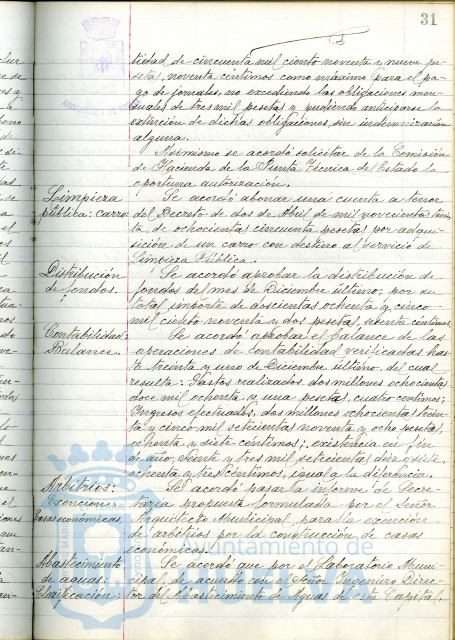 31
tidad de cincuenta mil ciento noventa y nueve pe-
setas, noventa céntimos como máximo para el pa-
go de jornales, no excediendo las obligaciones men-
suales de tres mil pesetas y pudiendo anticiparse la
extinción de dichas obligaciones, sin indemnización
alguna.
Asimismo se acordó solicitar de la Comisión
de Hacienda de la Junta Técnica del Estado la
oportuna autorización.
Limpieza
pública: carro
Se acordó abonar una cuenta a tenor
del Decreto de dos de Abril de mil novecientos trein-
ta, de ochocientas cincuenta pesetas, por adqui-
sición de un carro con destino al servicio de
Limpieza Pública.
Distribución
de fondos.
Se acordó aprobar la distribución de
fondos del mes de Diciembre último, por su
total importe de doscientas ochenta y cinco
mil ciento noventa y dos pesetas, céntimos.
Contabilidad:
Balance.
Se acordó aprobar el balance de las
operaciones de Contabilidad verificadas has-
ta treinta y uno de Diciembre último, del cual
resulta: Gastos realizados, dos millones ochocientas
doce mil ochenta y una pesetas, cuatro céntimos;
Ingresos efectuados, dos millones ochocientas trein-
ta y cinco mil setecientas noventa y ocho pesetas,
ochenta y siete céntimos; existencia en fin
de año, veinte y tres mil setecientas diez y siete,
ochenta y tres céntimos, igual a la diferencia.
Arbitrios:
Exenciones:
Casas económicas.
Se acordó pasar a informe de Secre-
taría propuesta formulada por el Señor
Arquitecto Municipal, para la exención
de arbitrios por la construcción de casas
económicas.
Abastecimiento
de aguas:
Clasificación:
Se acordó que por el Laboratorio Muni-
cipal, de acuerdo con el Señor Ingeniero Direc-
tor del Abastecimiento de Aguas de esta Capital,
Ayuntamiento de